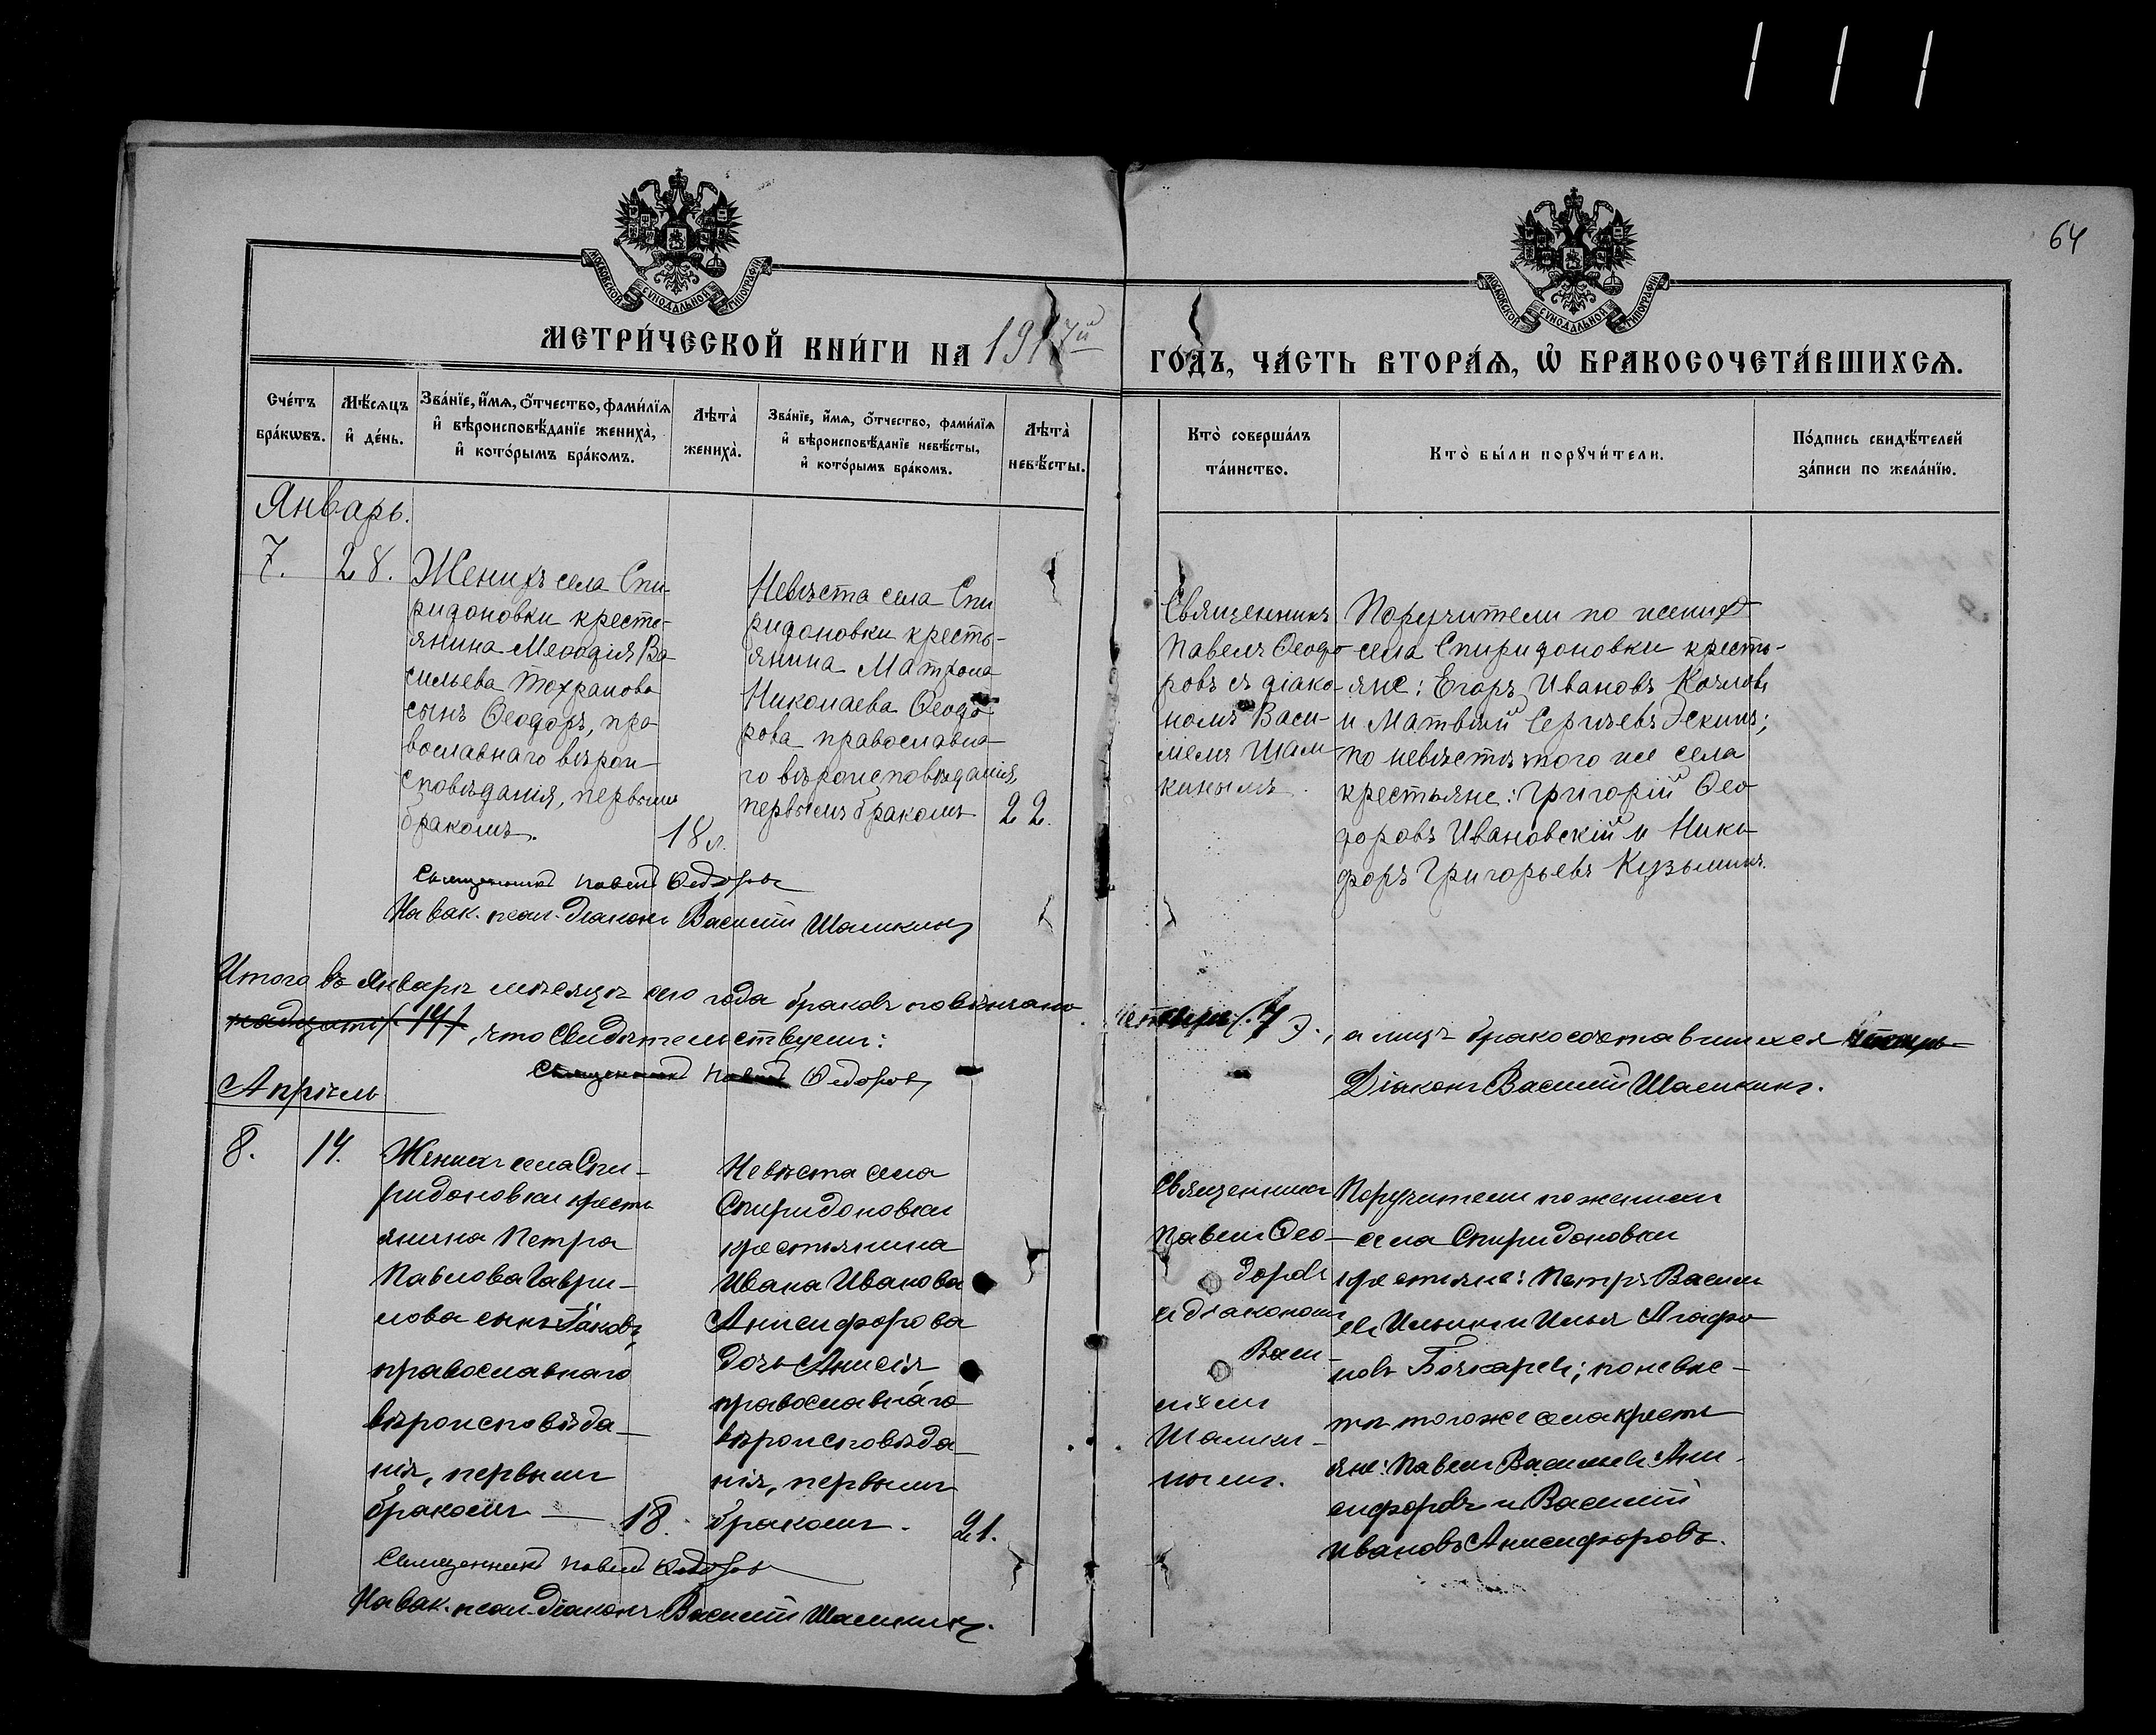 64
МОСКОВСКОЙ СѴНОДАЛЬНОЙ ТИПОГРАФІИ
МОСКОВСКОЙ СѴНОДАЛЬНОЙ ТИПОГРАФІИ
МЕТРИ́ЧЕСКОЙ КНИ́ГИ НА 1917й
ГО́ДЪ, ЧА́СТЬ ВТОРА́Ѧ, Ѡ҆ БРАКОСОЧЕТА́ВШИХСѦ.
Сче́тъ бра́кѡвъ.
Мѣ́сѧцъ и҆ де́нь.
Зва́нїе, и҆́мѧ, ѻ҆́тчество, фами́лїѧ
и҆ вѣроисповѣ́данїе жениха̀,
и҆ кото́рымъ бра́комъ.
Лѣта̀ жениха̀.
Зва́нїе, и҆́мѧ, ѻ҆́тчество, фами́лїѧ
и҆ вѣроисповѣ́данїе невѣ́сты,
и҆ кото́рымъ бра́комъ.
Лѣта̀ невѣ́сты.
Кто̀ соверша́лъ
та́инство.
Кто̀ бы́ли порꙋчи́тели.
По́дпись свидѣ́телей
за́писи по жела́нїю.
Январь.
7.
28.
Женихъ села Спи-
ридоновки кресть-
янина Меѳодія Ва-
сильева
сынъ Ѳеодоръ, пра-
вославнаго вѣрои-
сповѣданія, первымъ
бракомъ.
18 л.
Невѣста села Спи
ридоновки кресть-
янина Матрона
Николаева Ѳеодо-
рова православна-
го вѣроисповѣданія,
первымъ бракомъ
22.
Священникъ
Павелъ Ѳеодо-
ровъ съ діако-
номъ Васи-
ліемъ Шам-
кинымъ.
Поручители по жениху
села Спиридоновки кресть-
яне: Егоръ Ивановъ Козловъ
и Матвѣй Сергѣевъ Эскинъ;
по невѣстѣ того же села
крестьяне: Григорій Ѳео-
доровъ Ивановскій и Ники-
форъ Григорьевъ Кузьминъ.
Священникъ Павелъ Ѳедоровъ
На вак. псал. діаконъ Василій Шамкинъ
Итого въ Январѣ мѣсяцѣ сего года браковъ повѣнчано
четыре (.7.), а лицъ бракосочетавшихся четыр-
надцать (14), что свидѣтельствуемъ:
Священникъ Павелъ Ѳедоровъ
Діаконъ Василій Шамкинъ.
Апрѣль
8.
14.
Женихъ села Спи-
ридоновки кресть
янина Петра
Павлова Гаври-
лова сынъ Іаковъ,
православнаго
вѣроисповѣда-
нія, первымъ
бракомъ —
18.
Невѣста села
Спиридоновки
крестьянина
Ивана Иванова
Анисифорова
дочь Анисія,
православнаго
вѣроисповѣда-
нія, первымъ
бракомъ.
21.
Священникъ
Павелъ Ѳео-
доровъ
съ діакономъ
Васи-
ліемъ
Шамки-
нымъ.
Поручители по женихѣ
села Спиридоновки
крестьяне: Петръ Василь
евъ Ильинъ и Илья Агафо-
новъ Бочкаревъ; по невѣс-
тѣ того же села кресть
яне: Павелъ Васильевъ Ани-
сифоровъ и Василій
Ивановъ Анисифоровъ.
Священникъ Павелъ Ѳедоровъ
На вак. псал. діаконъ Василій Шамкинъ.